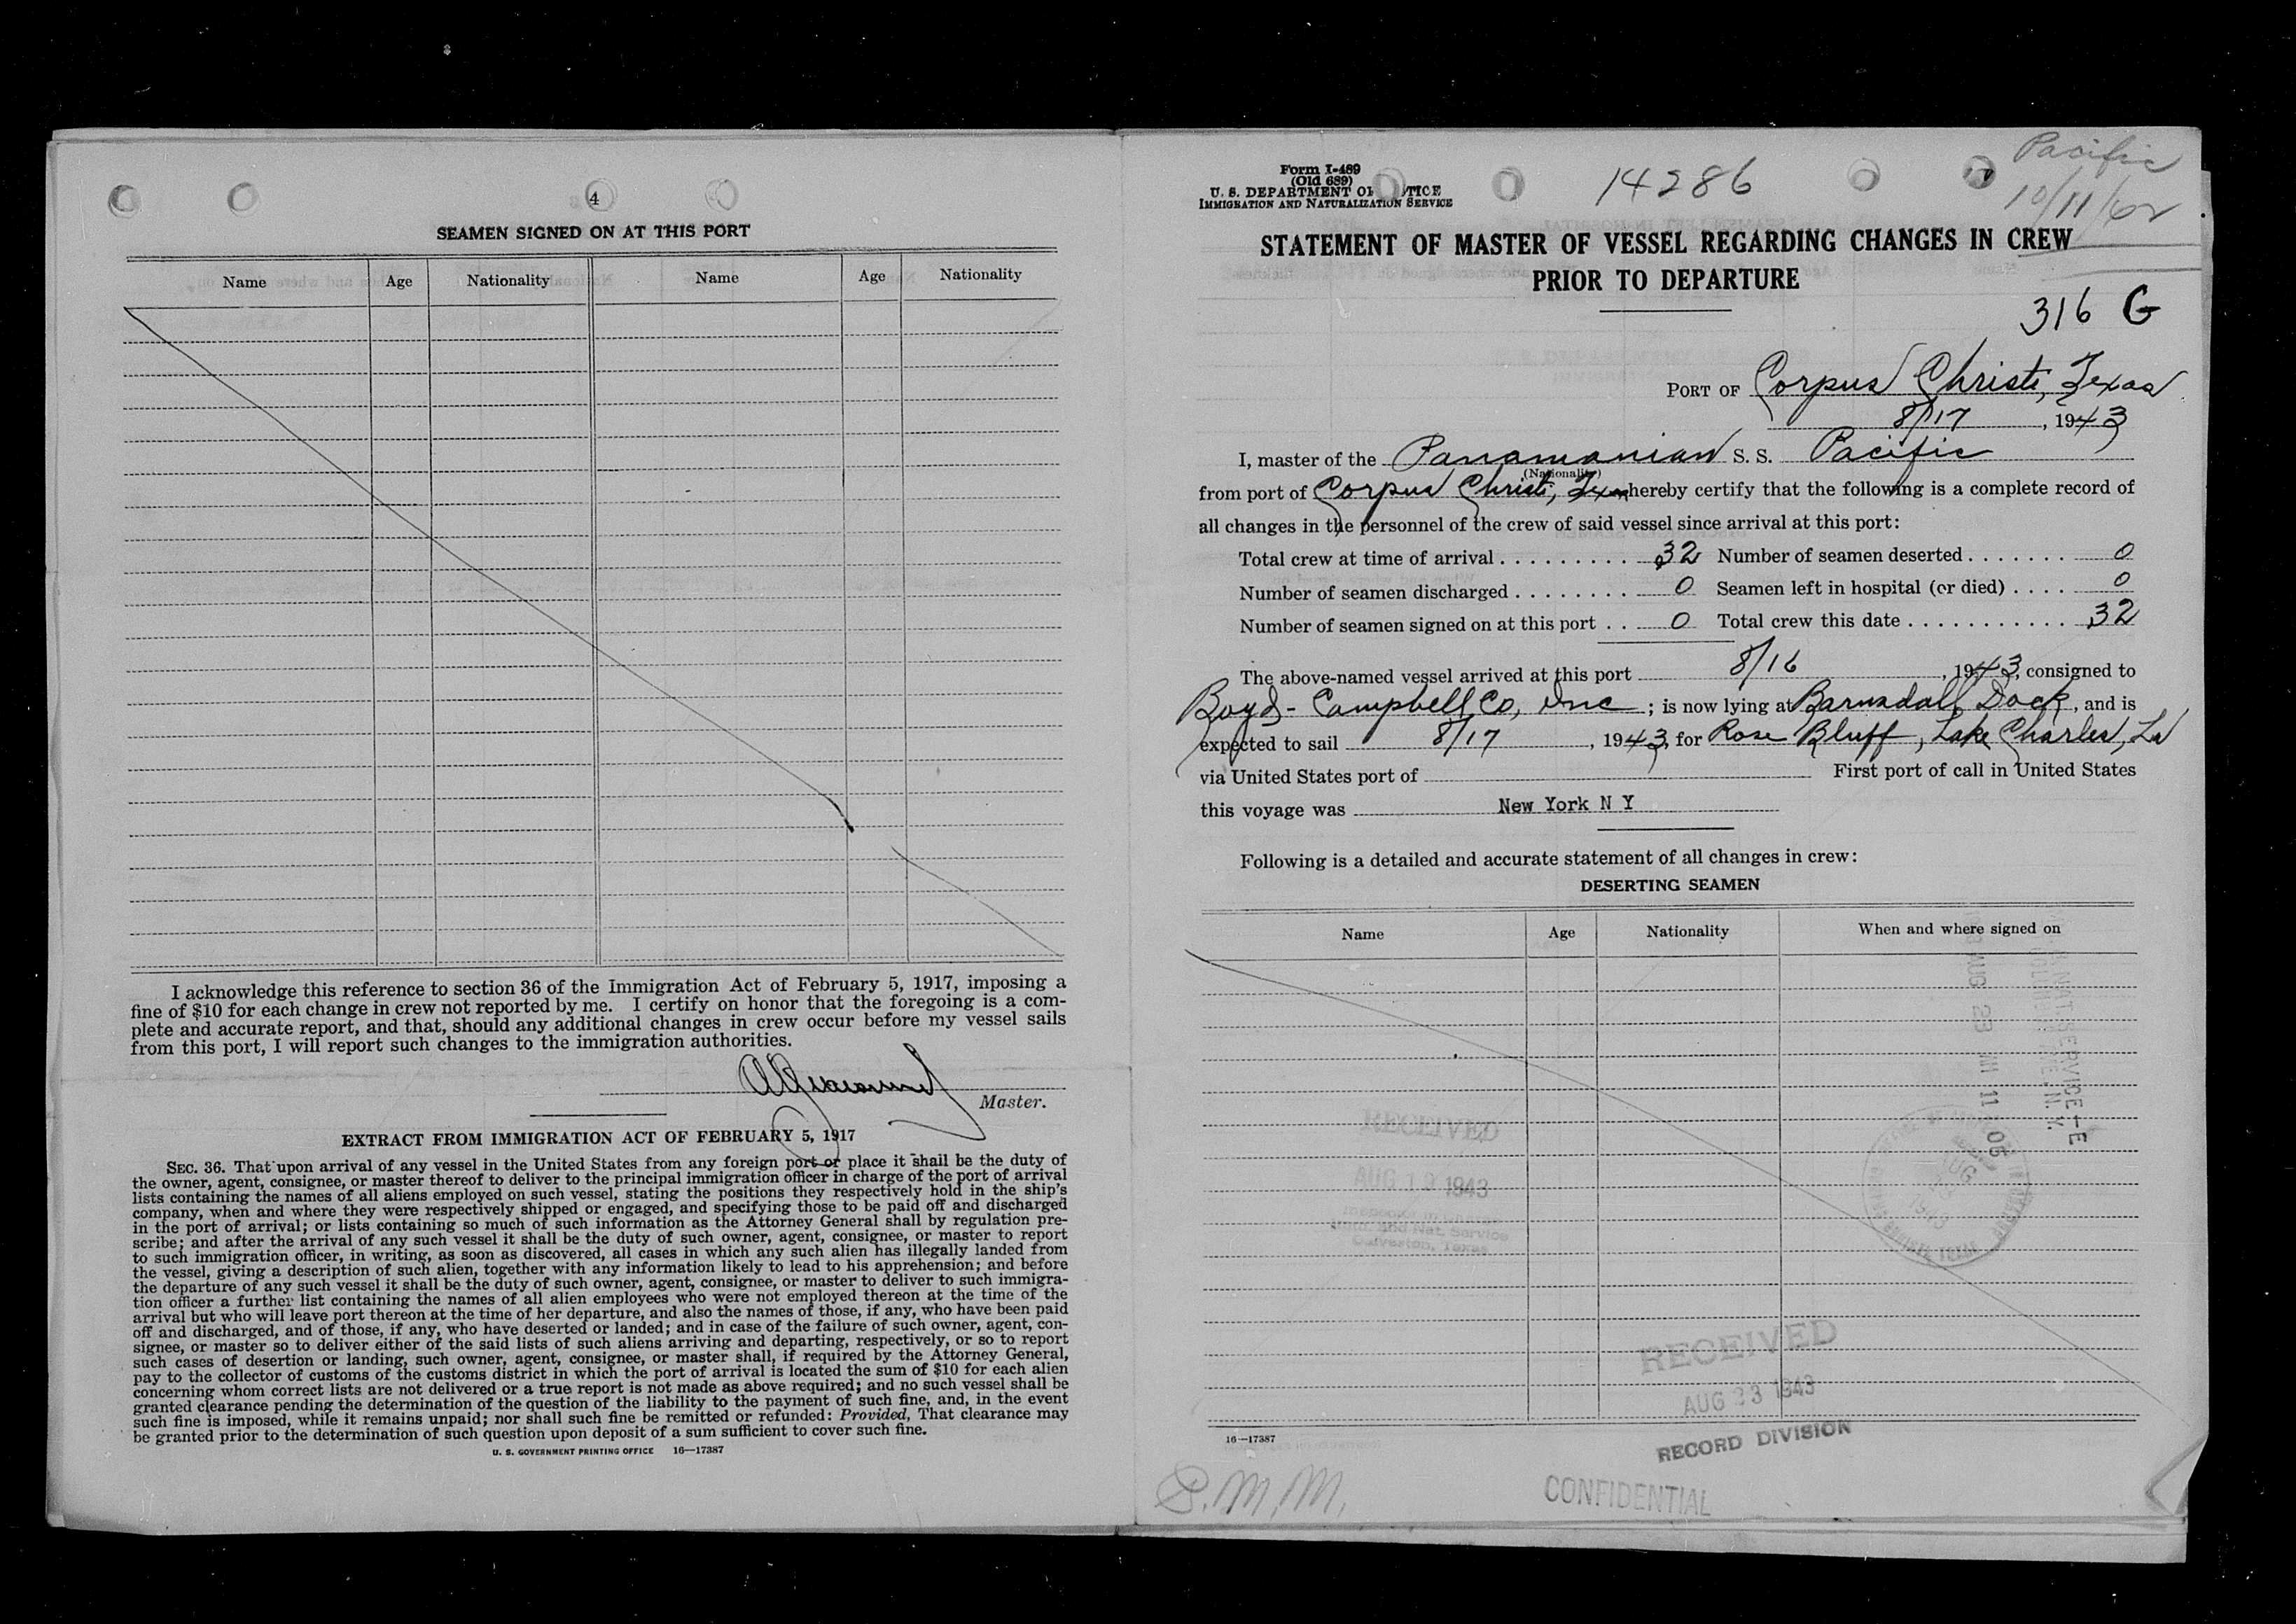 4
SEAMEN SIGNED ON AT THIS PORT
Name Age Nationality Name Age Nationality
I acknowledge this reference to section 36 of the Immigration Act of February 5, 1917, imposing a
fine of $10 for each change in crew not reported by me. I certify on honor that the foregoing is a com-
plete and accurate report, and that, should any additional changes in crew occur before my vessel sails
from this port, I will report such changes to the immigration authorities.
Master.
EXTRACT FROM IMMIGRATION ACT OF FEBRUARY 5, 1917
SEC. 36. That upon arrival of any vessel in the United States from any foreign port or place it shall be the duty of
the owner, agent, consignee, or master thereof to deliver to the principal immigration officer in charge of the port of arrival
lists containing the names of all aliens employed on such vessel, stating the positions they respectively hold in the ship's
company, when and where they were respectively shipped or engaged, and specifying those to be paid off and discharged
in the port of arrival; or lists containing so much of such information as the Attorney General shall by regulation pre-
scribe; and after the arrival of any such vessel it shall be the duty of such owner, agent, consignee, or master to report
to such immigration officer, in writing, as soon as discovered, all cases in which any such alien has illegally landed from
the vessel, giving a description of such alien, together with any information likely to lead to his apprehension; and before
the departure of any such vessel it shall be the duty of such owner, agent, consignee, or master to deliver to such immigra-
tion officer a further list containing the names of all alien employees who were not employed thereon at the time of the
arrival but who will leave port thereon at the time of her departure, and also the names of those, if any, who have been paid
off and discharged, and of those, if any, who have deserted or landed; and in case of the failure of such owner, agent, con-
signee, or master so to deliver either of the said lists of such aliens arriving and departing, respectively, or so to report
such cases of desertion or landing, such owner, agent, consignee, or master shall, if required by the Attorney General,
pay to the collector of customs of the customs district in which the port of arrival is located the sum of $10 for each alien
concerning whom correct lists are not delivered or a true report is not made as above required; and no such vessel shall be
granted clearance pending the determination of the question of the liability to the payment of such fine, and, in the event
such fine is imposed, while it remains unpaid; nor shall such fine be remitted or refunded: Provided, That clearance may
be granted prior to the determination of such question upon deposit of a sum sufficient to cover such fine.
U. S. GOVERNMENT PRINTING OFFICE 16—17387
Form I-489
(Old 689)
U. S. DEPARTMENT OF JUSTICE
IMMIGRATION AND NATURALIZATION SERVICE
14286
Pacific
10/11/62
STATEMENT OF MASTER OF VESSEL REGARDING CHANGES IN CREW
PRIOR TO DEPARTURE
316 G
PORT OF Corpus Christi, Texas
8/17, 1943
I, master of the Panamanian S. S. Pacific
(Nationality)
from port of Corpus Christi, Tex hereby certify that the following is a complete record of
all changes in the personnel of the crew of said vessel since arrival at this port:
Total crew at time of arrival 32 Number of seamen deserted 0
Number of seamen discharged 0 Seamen left in hospital (or died) 0
Number of seamen signed on at this port 0 Total crew this date 32
The above-named vessel arrived at this port 8/16, 1943, consigned to
Boyd-Campbell Co, Inc; is now lying at Barnsdall Dock, and is
expected to sail 8/17, 1943, for Rose Bluff, Lake Charles, La
via United States port of First port of call in United States
this voyage was New York N Y
Following is a detailed and accurate statement of all changes in crew:
DESERTING SEAMEN
Name Age Nationality When and where signed on
AUG 23 AM 11 05
RECEIVED
AUG 19 1943
Immi. and Nat. Service
Galveston, Texas
RECEIVED
AUG 23 1943
RECORD DIVISION
16—17387
P.M.M.
CONFIDENTIAL